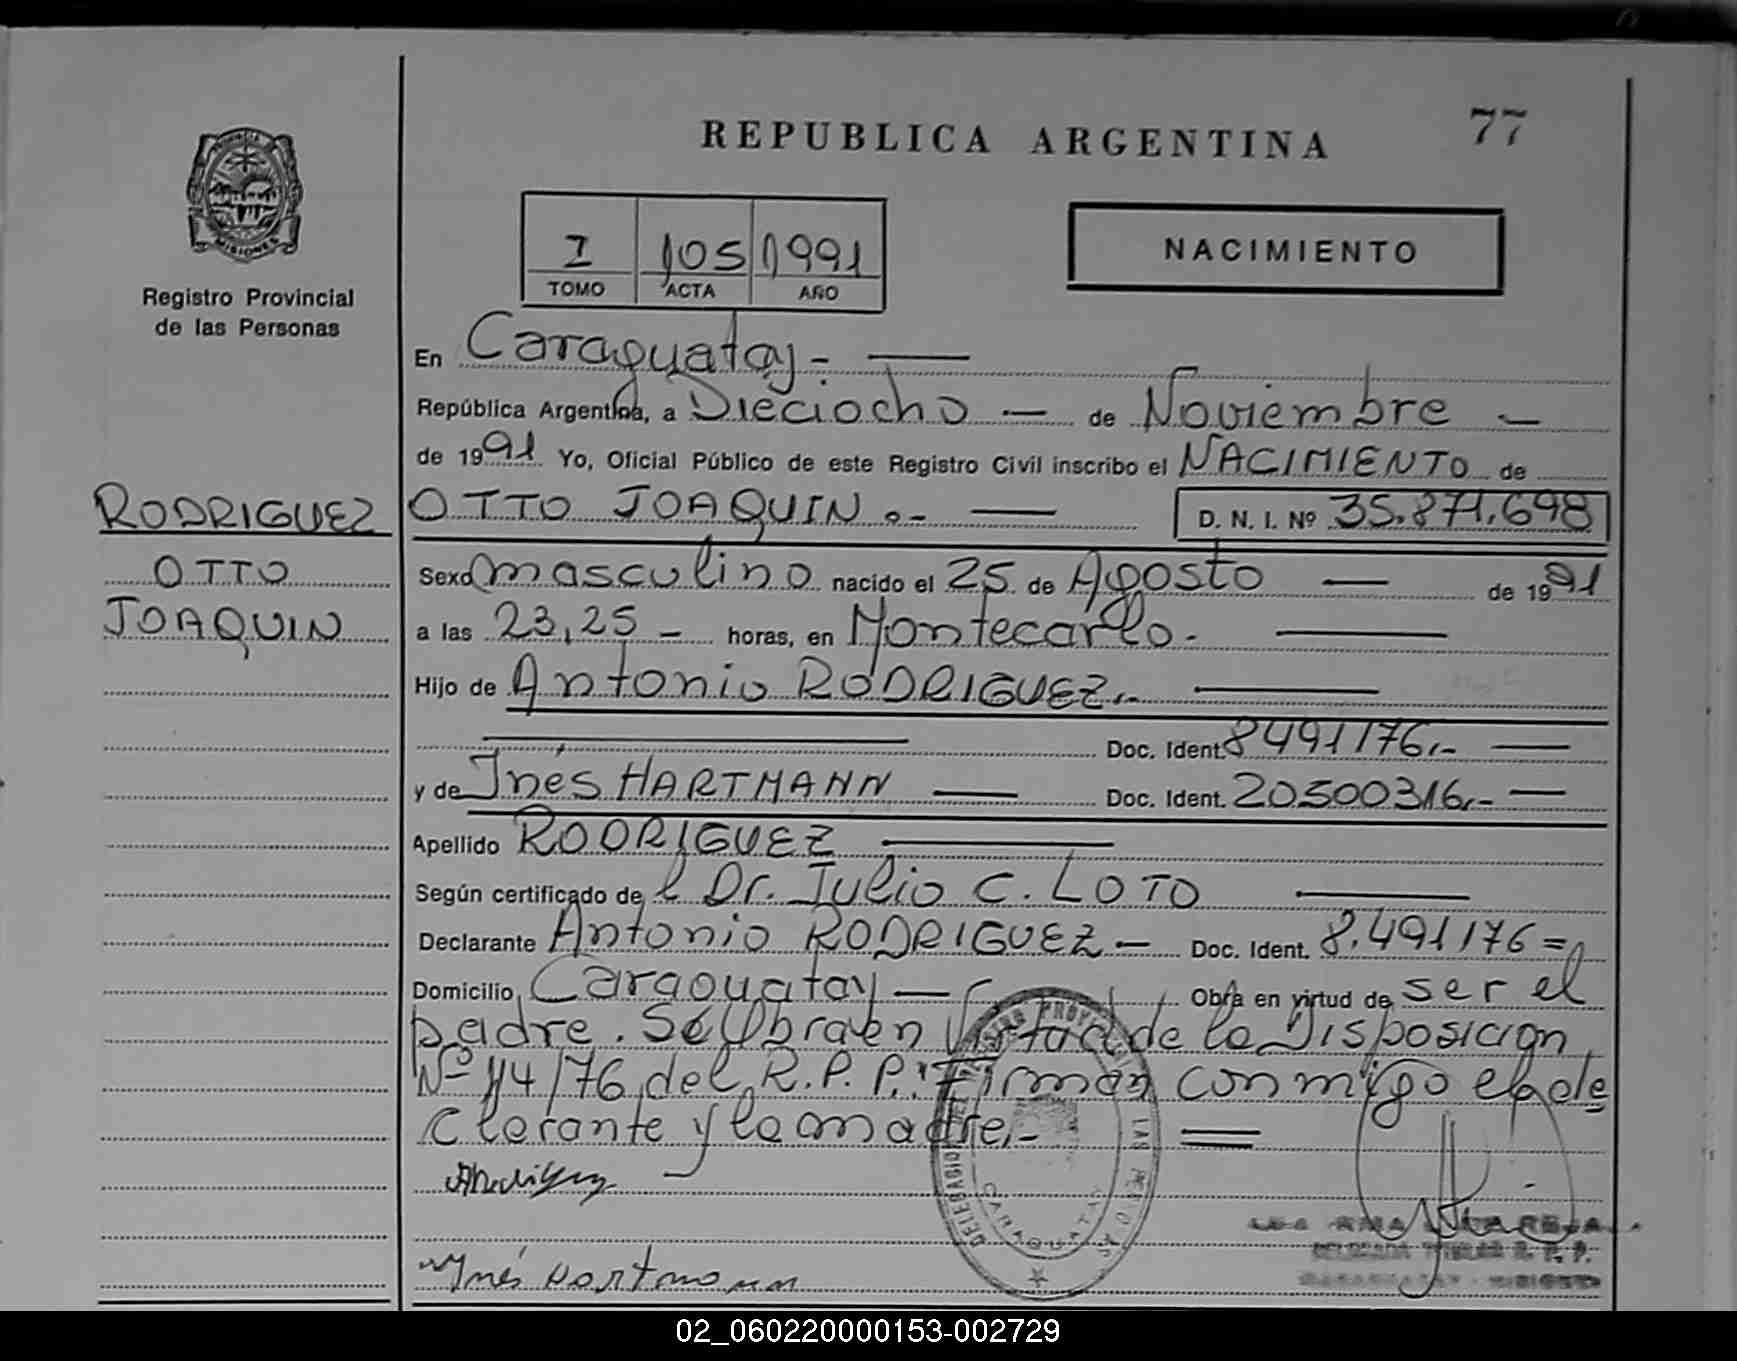 77
REPUBLICA ARGENTINA
PROVINCIA
MISIONES
Registro Provincial
de las Personas
I 105 1991
TOMO ACTA AÑO
NACIMIENTO
En Caraguatay.-
República Argentina, a Dieciocho — de Noviembre —
de 1991 Yo, Oficial Público de este Registro Civil inscribo el NACIMIENTO de
RODRIGUEZ
OTTO
JOAQUIN
OTTO JOAQUIN.- — D. N. I. Nº 35.871.698
Sexo masculino nacido el 25 de Agosto — de 1991
a las 23,25 — horas, en Montecarlo.-
Hijo de Antonio RODRIGUEZ.-
Doc. Ident. 8491176.-
y de Inés HARTMANN — Doc. Ident. 20500316.-
Apellido RODRIGUEZ
Según certificado del Dr. Julio C. LOTO
Declarante Antonio RODRIGUEZ — Doc. Ident. 8.491176=
Domicilio Caraguatay — Obra en virtud de ser el
padre. Se Obra en Virtud de la Disposición
Nº 114/76 del R.P.P.: Firman conmigo el de
clarante y la madre.-
Inés Hartmann
CARAGUATAY
DELEGADA TITULAR R. P. P.
CARAGUATAY - MISIONES
02_060220000153-002729